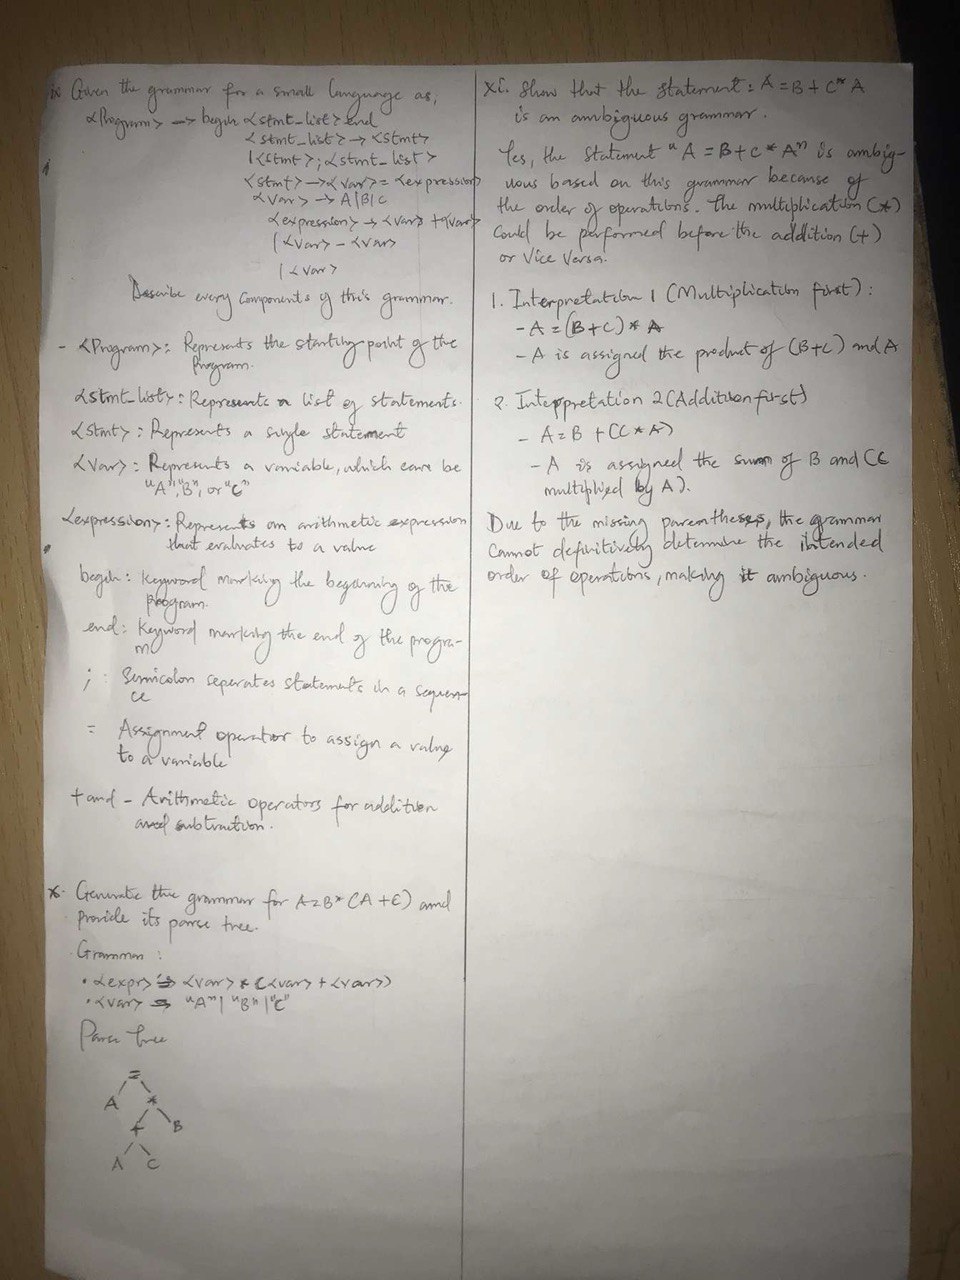 ix Given the grammar for a small language as,
<Program> → begin <stmt_list> end
<stmt_list> → <stmt>
|<stmt>; <stmt_list>
<stmt> → <var> = <expression>
<var> → A|B|C
<expression> → <var> + <var>
|<var> - <var>
|<var>
Describe every components of this grammar.
- <Program>: Represents the starting point of the
Program.
<stmt_list>: Represents a list of statements.
<stmt>: Represents a single statement
<var>: Represents a variable, which can be
"A", "B", or "C"
<expression>: Represents an arithmetic expression
that evaluates to a value
begin: Keyword marking the beginning of the
program.
end: Keyword marking the end of the progra-
m
; : Semicolon seperates statements in a sequen-
ce
= Assignment operator to assign a value
to a variable
+ and - Arithmetic operators for addition
and subtraction.
x. Generate the grammar for A=B*(A+C) and
provide its parse tree.
Grammar :
• <expr> → <var> * (<var> + <var>)
• <var> → "A" | "B" | "C"
Parse tree
=
A *
+ B
A C
xi. Show that the statement: A = B + C * A
is an ambiguous grammar.
Yes, the statement "A = B + C * A" is ambig-
uous based on this grammar because of
the order of operations. The multiplication (*)
could be performed before the addition (+)
or Vice Versa.
1. Interpretation 1 (Multiplication first) :
- A = (B + C) * A
- A is assigned the product of (B+C) and A
2. Interpretation 2 (Addition first)
- A = B + (C * A)
- A is assigned the sum of B and (C
multiplied by A).
Due to the missing parentheses, the grammar
cannot definitively determine the intended
order of operations, making it ambiguous.